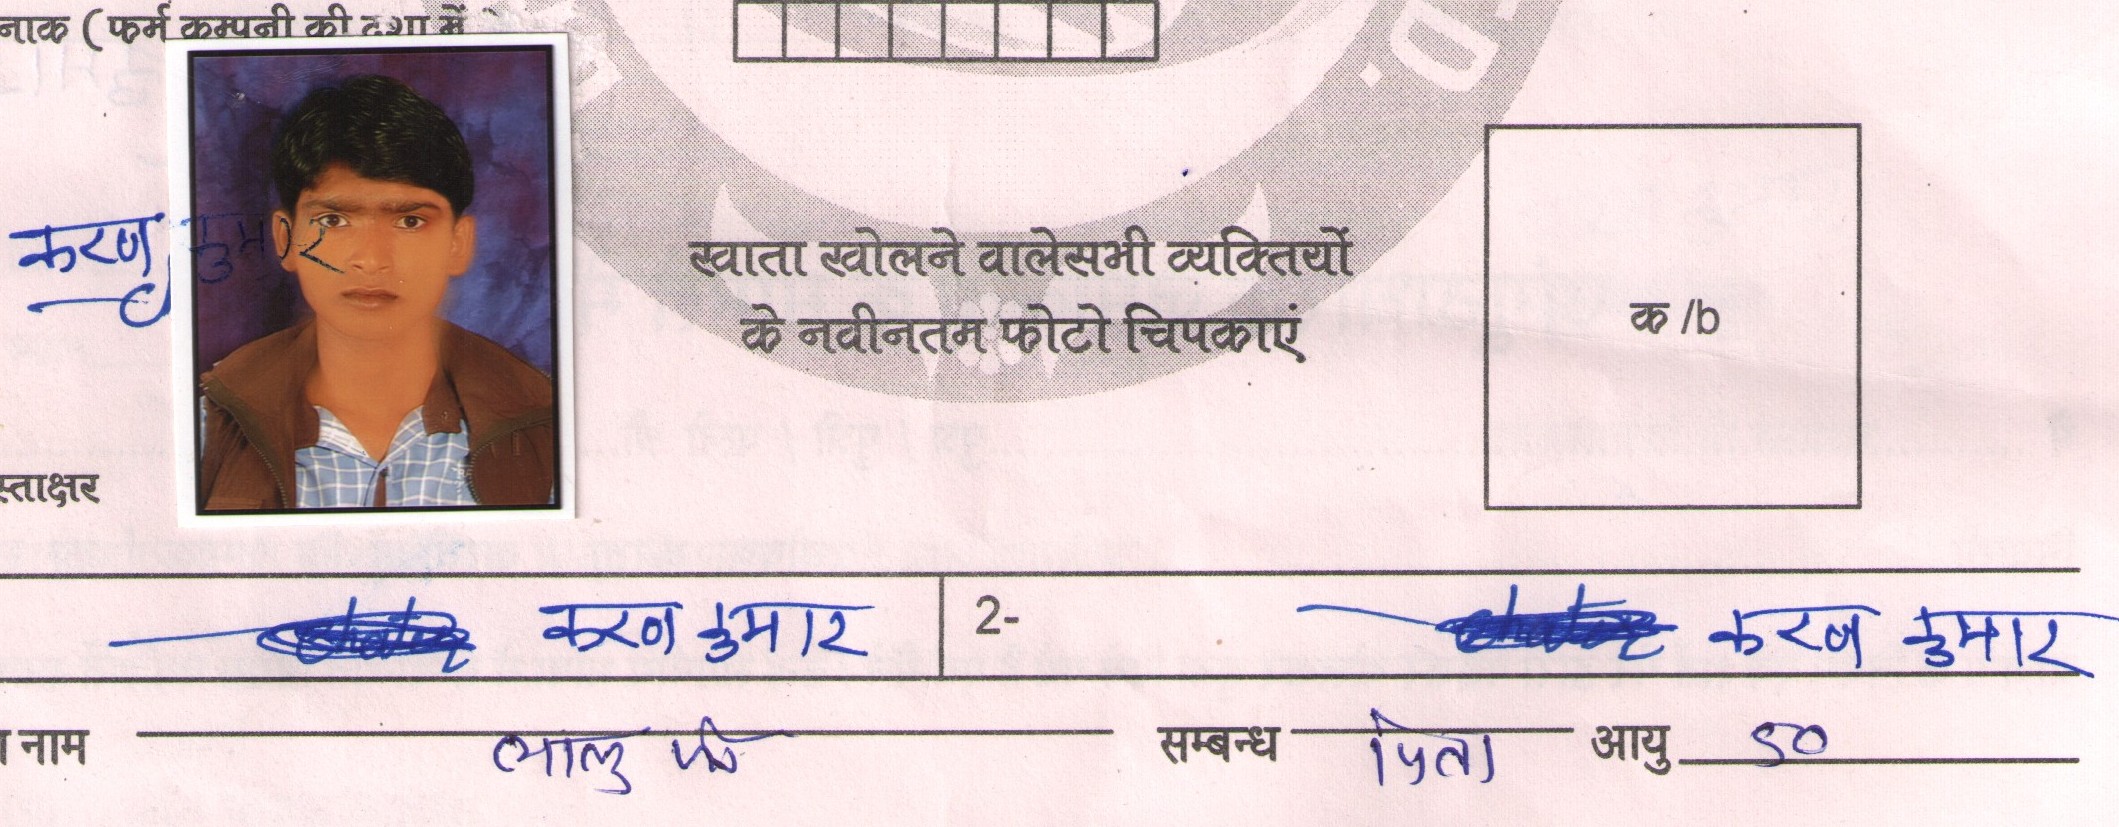 नाक ( फर्म कम्पनी की दशा में
करण कुमार
खाता खोलने वालेसभी व्यक्तियों
के नवीनतम फोटो चिपकाएं
क /b
स्ताक्षर
करण कुमार 2- करण कुमार
नाम सम्बन्ध पिता आयु 50